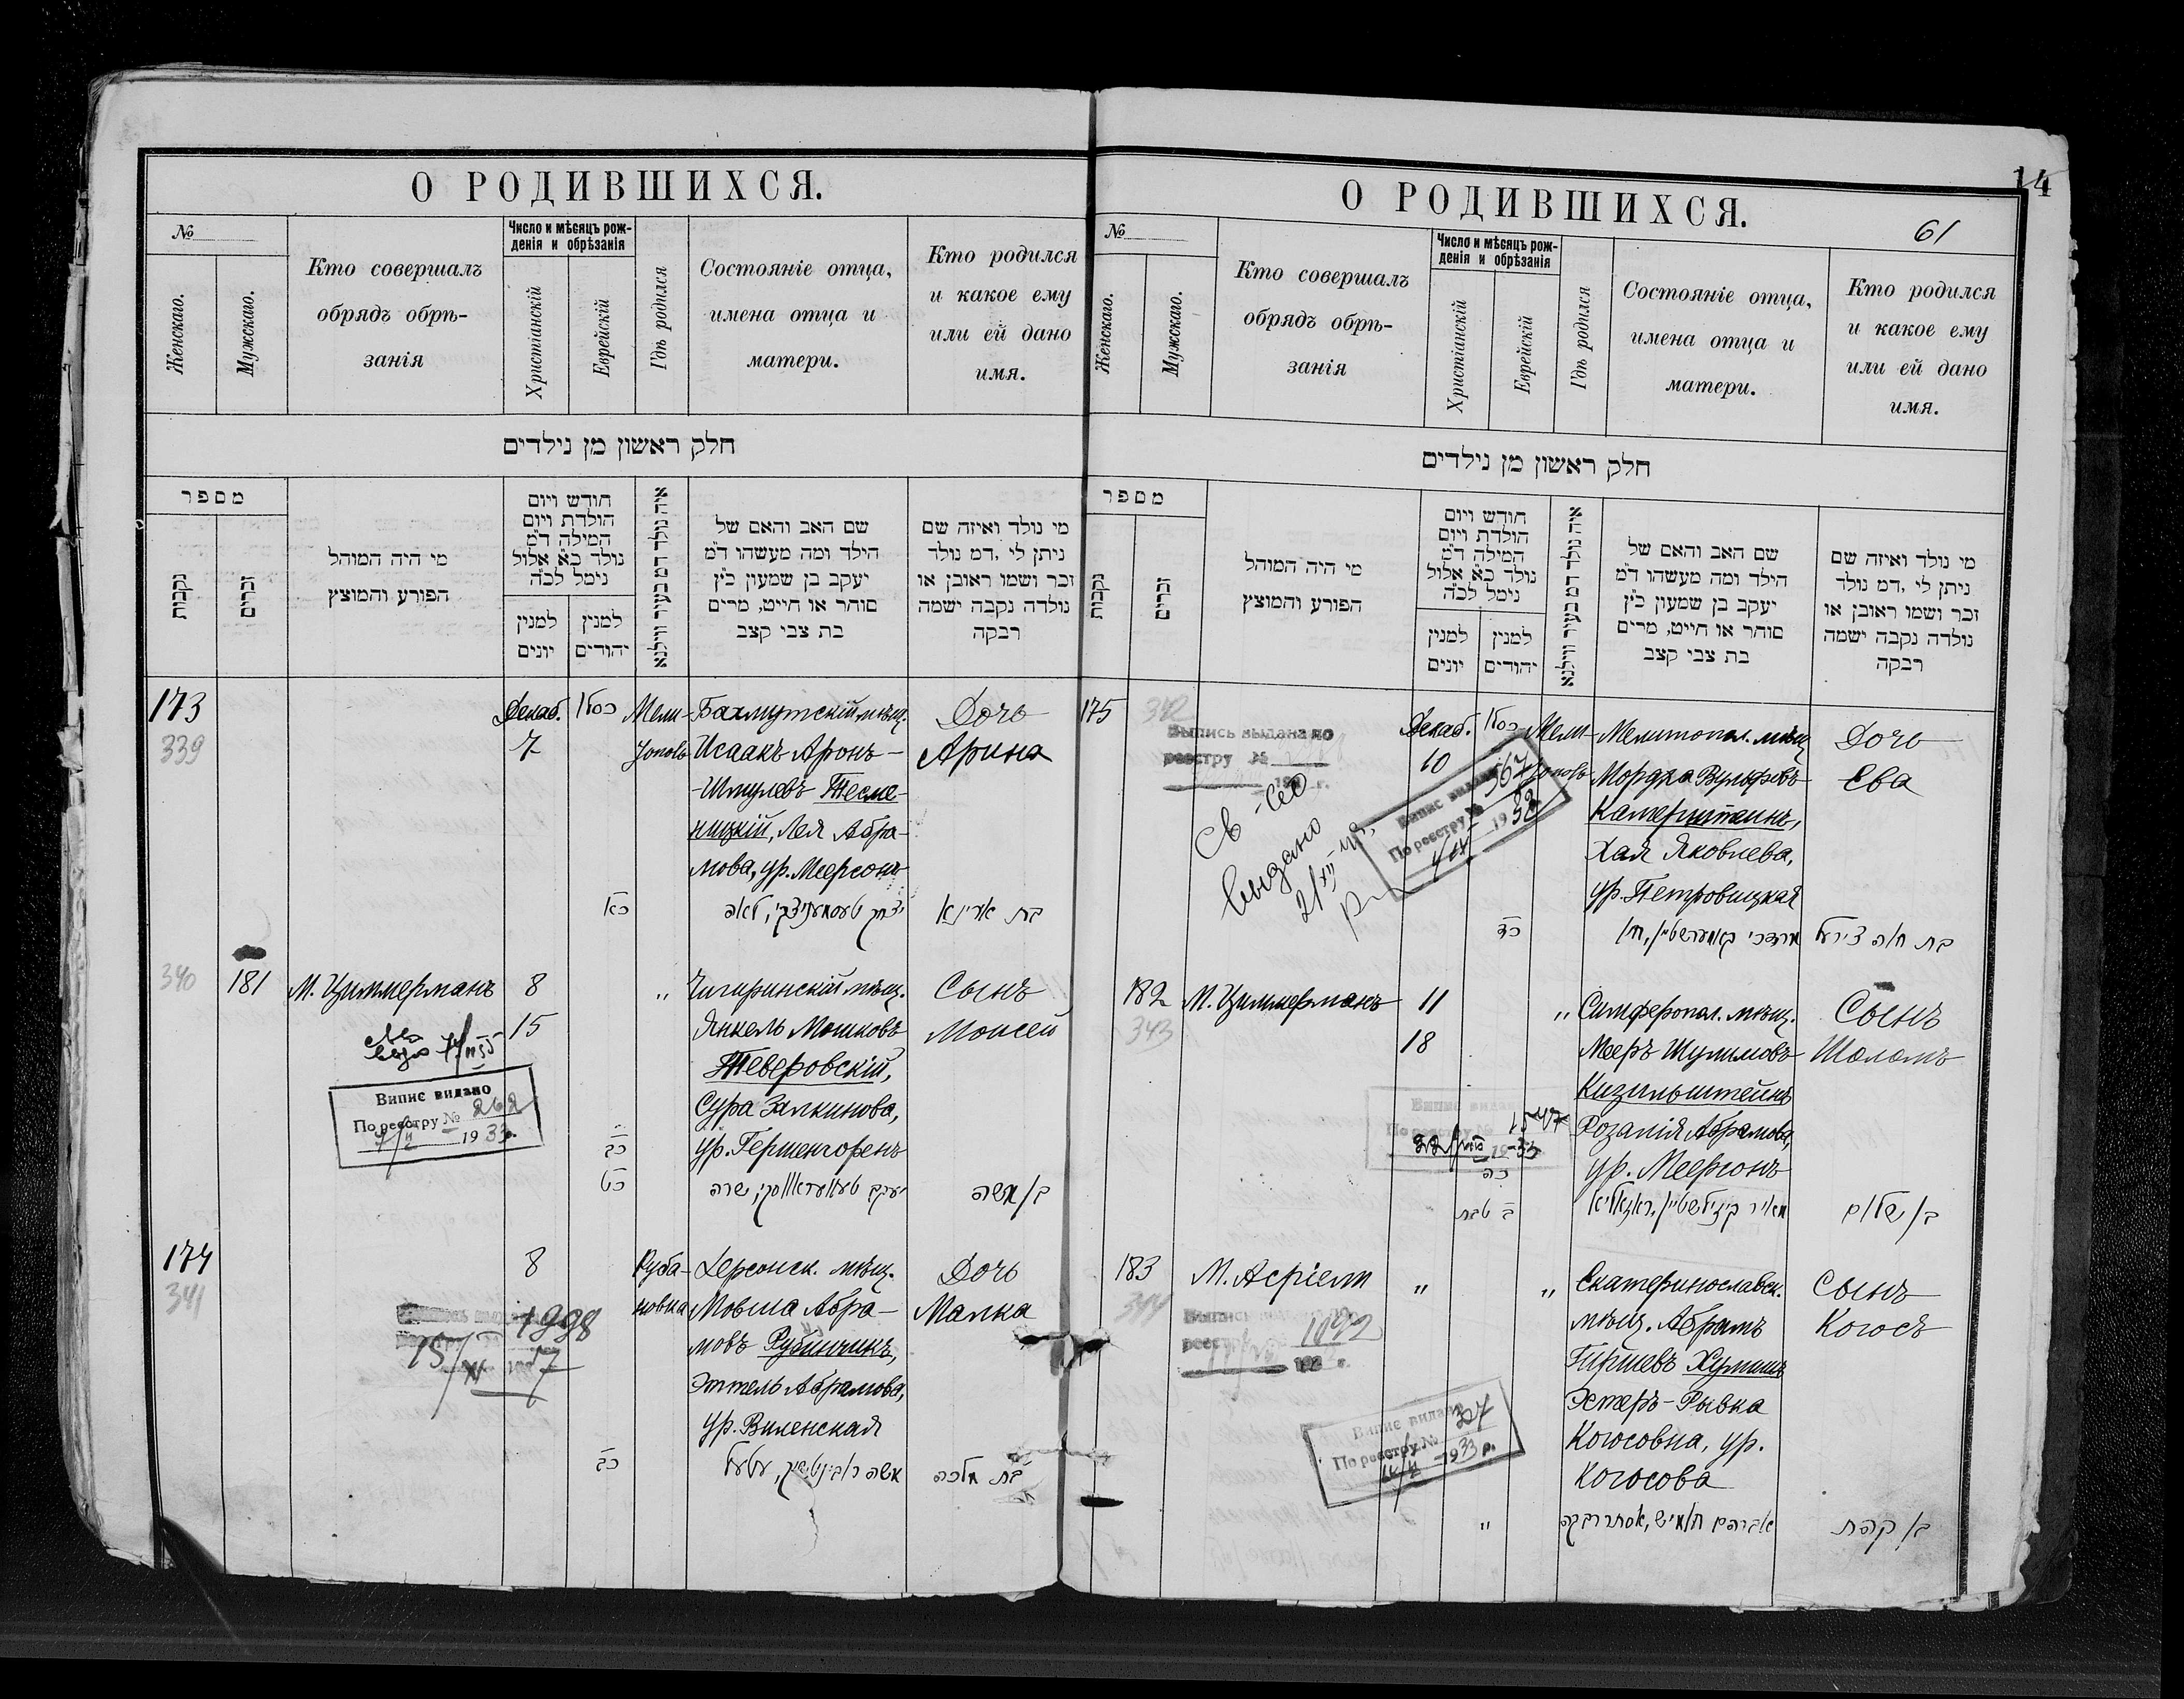 О РОДИВШИХСЯ.
№
Женскаго.
Мужскаго.
Кто совершалъ
обрядъ обрѣ-
занія
Число и мѣсяцъ рож-
денія и обрѣзанія
Христіанскій
Еврейскій
Гдѣ родился
Состояніе отца,
имена отца и
матери.
Кто родился
и какое ему
или ей дано
имя.
חלק ראשון מן נילדים
מספר
נקבות
זכרים
מי היה המוהל
הפורע והמוצץ
חודש ויום
הולדת ויום
המילה ד"מ
נולד כ"א אלול
נימל לכ"ה
למנין
יונים
למנין
יהודים
איה נולד דמ בעיר ווילנא
שם האב והאם של
הילד ומה מעשהו ד"מ
יעקב בן שמעון כ"ץ
סוהר או חייט, מרים
בת צבי קצב
מי נולד ואיזה שם
ניתן לי ,דמ נולד
זכר ושמו ראובן או
נולדה נקבה ישמה
רבקה
173
339
Декаб.
7
כסלו
Мели-
тополь
Бахмутскій мѣщ.
Исаакъ Аронъ-
-Шмулевъ Тесме-
ницкій, Лея Абра-
мова, ур. Меерсонъ
Дочь
Арина
כא
בת ארינא
340
181
М. Циммерманъ
8
15
"
Чигиринскій мѣщ.
Янкель Мошковъ
Тверовскій,
Сура Залкинова,
ур. Гершенгоренъ
Сынъ
Моисей
Випис видано
По реєстру № 262
1933 р.
כב
כט
בן משה
174
341
8
Руба-
новка
Херсонск. мѣщ.
Мовша Абра-
мовъ Рубинчикъ,
Эттель Абрамова,
ур. Виленская
Дочь
Малка
1998
15/
17
כב
בת מלכה
О РОДИВШИХСЯ.
14
61
№
Женскаго.
Мужскаго.
Кто совершалъ
обрядъ обрѣ-
занія
Число и мѣсяцъ рож-
денія и обрѣзанія
Христіанскій
Еврейскій
Гдѣ родился
Состояніе отца,
имена отца и
матери.
Кто родился
и какое ему
или ей дано
имя.
חלק ראשון מן נילדים
מספר
נקבות
זכרים
מי היה המוהל
הפורע והמוצץ
חודש ויום
הולדת ויום
המילה ד"מ
נולד כ"א אלול
נימל לכ"ה
למנין
יונים
למנין
יהודים
איה נולד דמ בעיר ווילנא
שם האב והאם של
הילד ומה מעשהו ד"מ
יעקב בן שמעון כ"ץ
סוהר או חייט, מרים
בת צבי קצב
מי נולד ואיזה שם
ניתן לי ,דמ נולד
זכר ושמו ראובן או
נולדה נקבה ישמה
רבקה
175
342
Выпись выдана по
реестру №
Декаб.
10
כסלו
Мели-
тополь
Мелитопол. мѣщ
Мордка Вульфовъ
Камерштейнъ,
Хая Яковлева,
ур. Петровицкая
Дочь
Ева
Св-во
выдано
Випис видано
По реєстру № 367
1932
כד
בת חוה
182
343
М. Циммерманъ
11
18
"
Симферопол. мѣщ.
Мееръ Шулимовъ
Кизильштейнъ
Розалія Абрамова,
ур. Меерсонъ
Сынъ
Шоломъ
1547
כה
ב טבת
בן שלום
183
344
М. Асріели
"
"
Екатеринославск.
мѣщ. Абрамъ
Гиршевъ Хумишъ
Эстеръ-Рывка
Когосовна, ур.
Когосова
Сынъ
Когосъ
Випис видано
По реєстру № 327
1933 р.
"
אברהם חומיש, אסתר רבקה
בן קהת